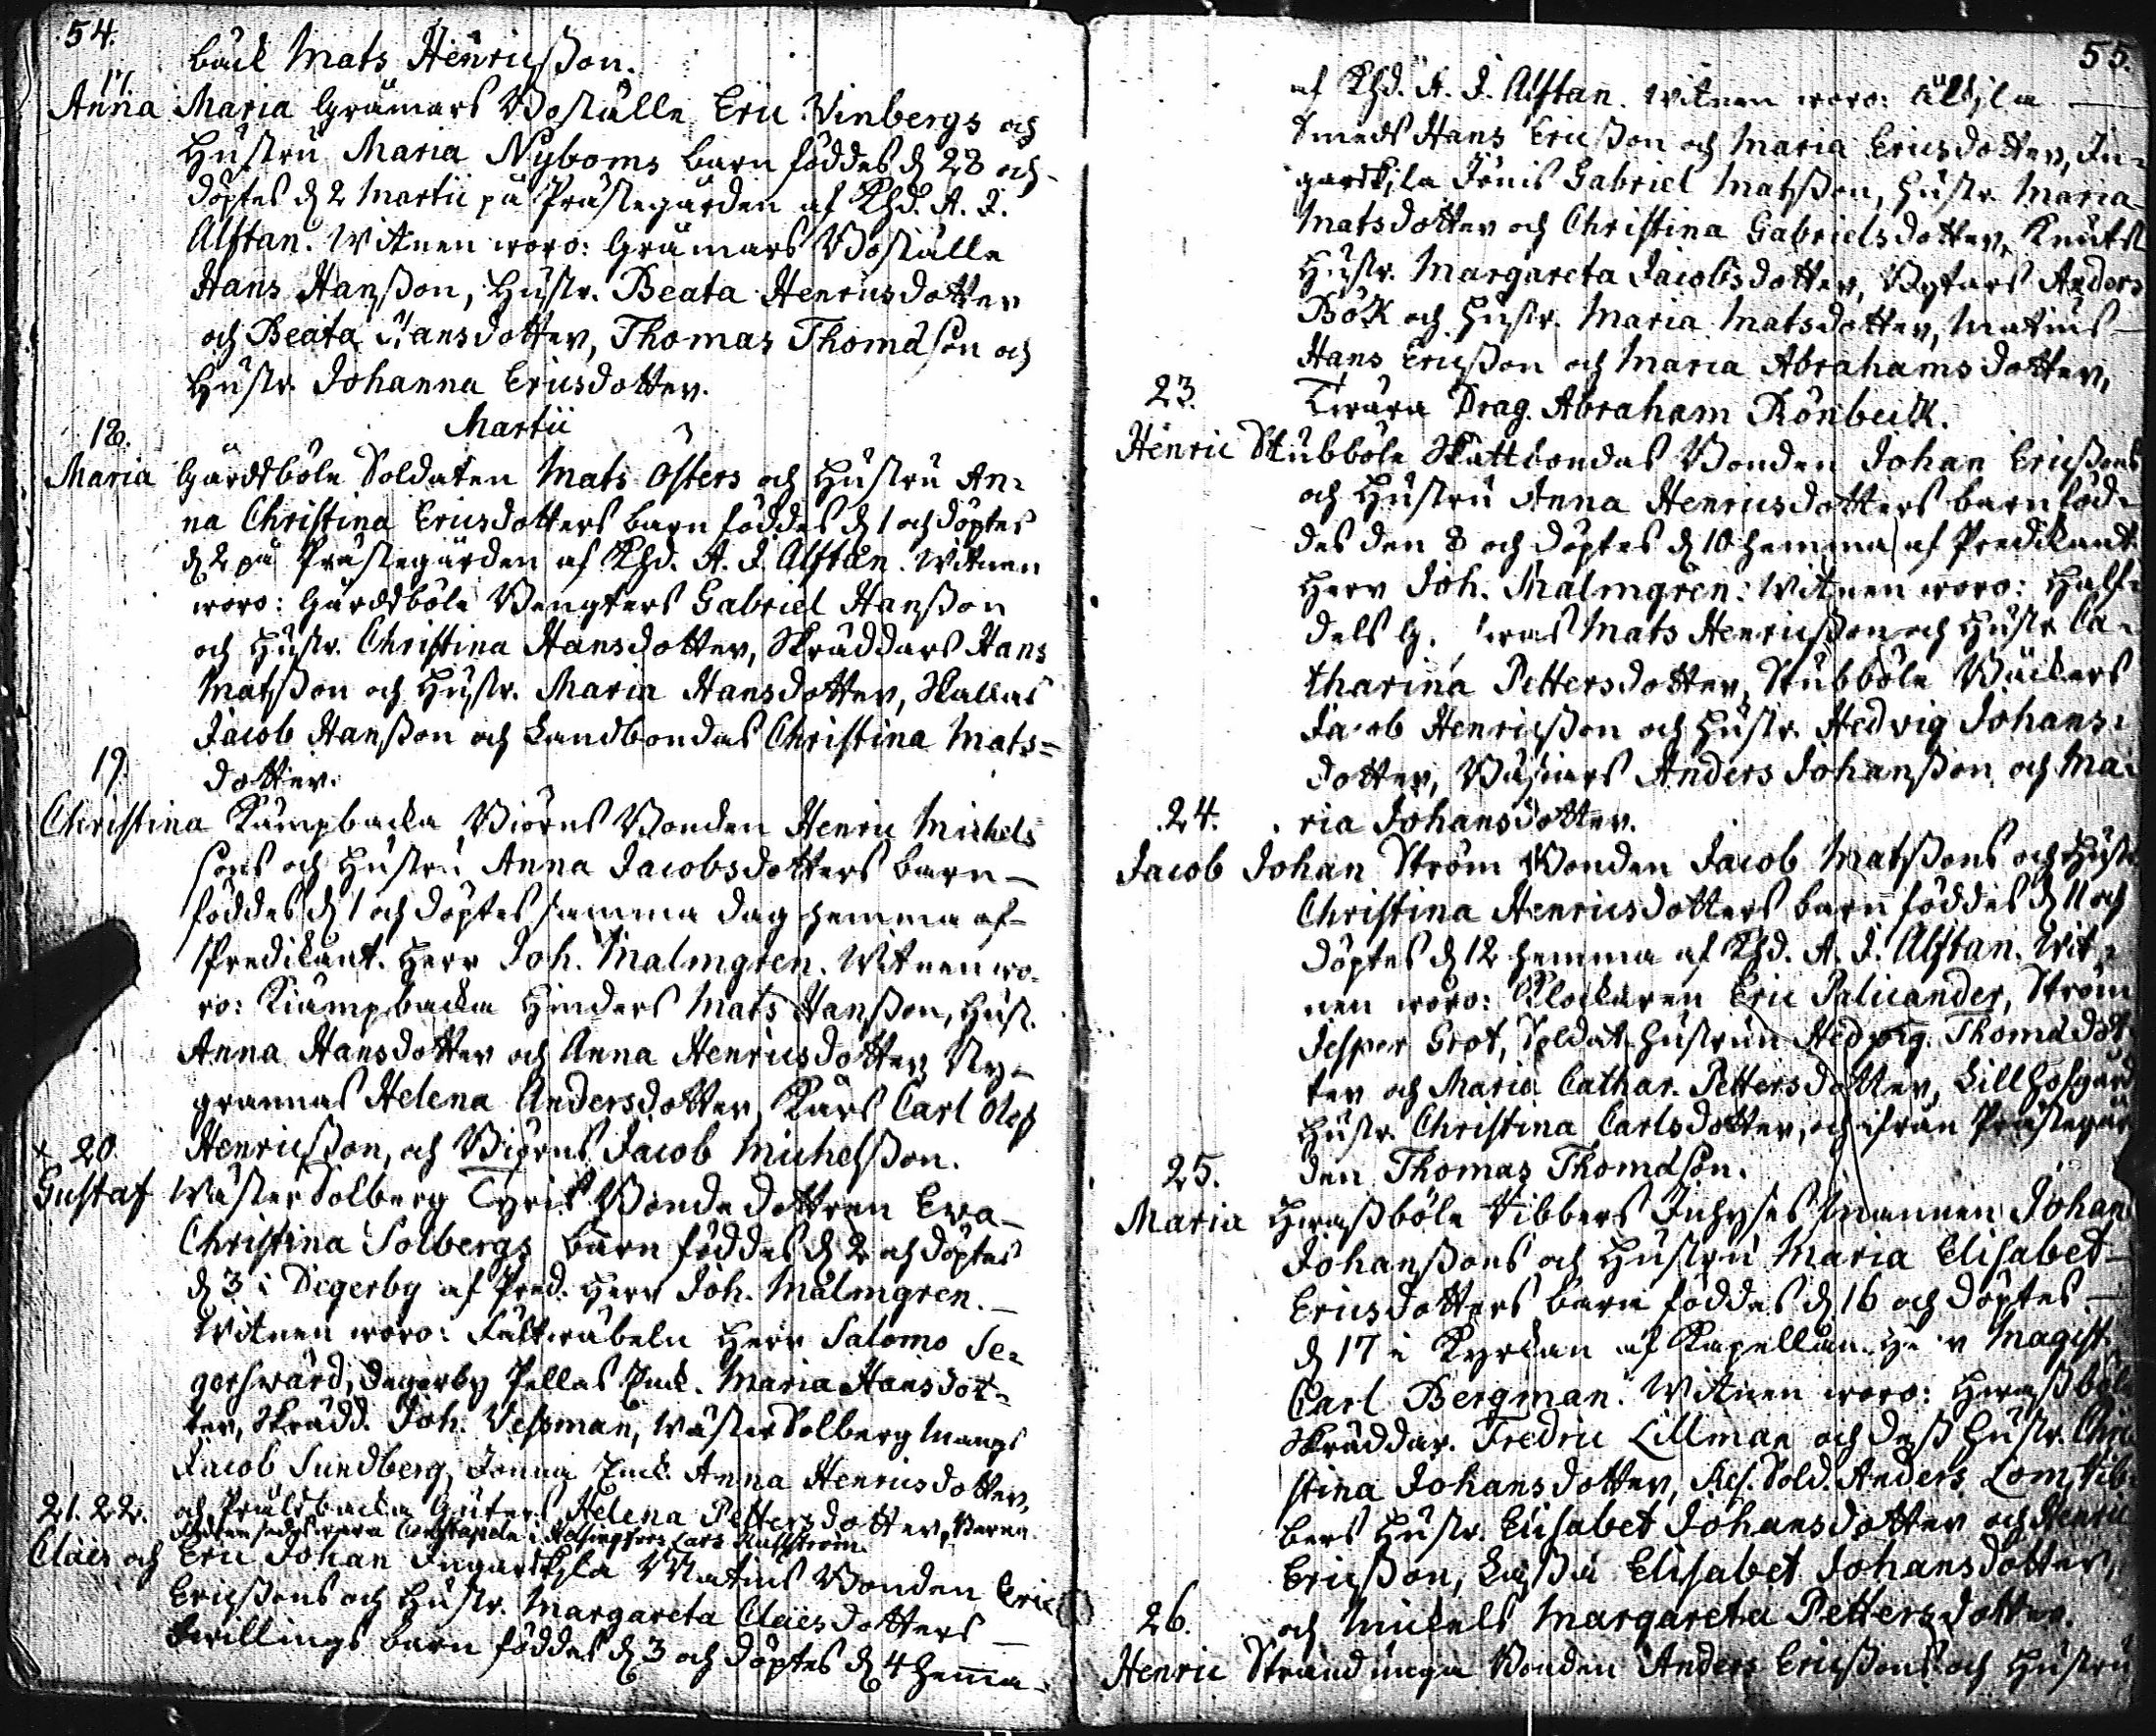 54.
bäck Mats Henricsson.
17.
Anna Maria Gråmars Boställe Eric Vinbergs och
Hustru Maria Nyboms barn föddes d 28 och
döptes d 2 Martii på Prästegården af Khd. A. J.
Alftan. Witnen woro: Gråmars Boställe
Hans Hansson, Hustr. Beata Henricsdotter
och Beata Hansdotter, Thomas Thomasson och
Hustr. Johanna Ericsdotter.
Martii
18.
Maria Gårdsböle Soldaten Mats Östers och Hustru An=
na Christina Ericsdotters barn föddes d 1 och döptes
d 2 på Prästegården af Khd. A. J. Alftan. Witnen
woro: Gårdsböle Bengters Gabriel Hansson
och Hustr. Christina Hansdotter, Skräddars Hans
Matsson och Hustr. Maria Hansdotter, Skallas
Jacob Hansson och Landbondas Christina Mats=
dotter.
19.
Christina Kämpbacka Biörns Bonden Henric Michels
sons och Hustru Anna Jacobsdotters barn
föddes d 1 och döptes samma dag hemma af
Predikant. Herr Joh. Malmgren. Witnen wo-
ro: Kiämpbacka Hinders Mats Hansson, Hust.
Anna Hansdotter och Anna Henricsdotter, Ny-
grannas Helena Andersdotter, Kårs Carl
Henricsson, och Biörns Jacob Michelsson.
x 20.
Gustaf Wäster Solberg Tyris Bonde dottren Ewa
Christina Solbergs barn föddes d 2 och döptes
d 3 i Degerby af Pred. Herr Joh. Malmgren.
Witnen woro: Fältwäbeln Herr Salomo Se=
gerswärd, Degerby Pellas Enk. Maria Hansdot=
ter, Skrädd. Joh. Vessman, Wäster Solberg Mangs
Jacob Sundberg, Jonna Enk. Anna Henricsdotter,
och backa Helena Pettersdotter,
Constapeln i Helsingfors Lars
21. 22.
Claës och Eric Johan Ingarskila Matius Bonden Eric
Ericssons och Hustr. Margareta Claësdotters
twillings barn föddes d 3 och döptes d 4 hemma
55.
af Khd. A. J. Alftan. Witnen woro:
Smeds Hans Ericsson och Maria Ericsdotter, In=
garskila Jönis Gabriel Matsson, Hustr. Maria
Matsdotter och Christina Gabrielsdotter, Knuts
Hustr. Margareta Jacobsdotter, Bytars Anders
Bök och Hustr. Maria Matsdotter, Matius
Hans Ericsson och Maria Abrahamsdotter,
Twära Drag. Abraham Rönbeck.
23.
Henric Stubböle Skattbondas Bonden Johan Ericssons
och Hustru Anna Henricsdotters barn föd=
des den 8 och döptes d 10 hemma af Predikant.
Herr Joh. Malmgren: Witnen woro: Half=
dels Mats Henricsson och Hustr. Ca=
tharina Pettersdotter, Stubböle Bäckers
Jacob Henricsson och Hustr. Hedvig Johans=
dotter, Anders Johansson och Ma=
ria Johansdotter.
24.
Jacob Johan Ström Bonden Jacob Matssons och Hustr.
Christina Henricsdotters barn föddes d 11 och
döptes d 12 hemma af Khd. A. J. Alftan. Wit=
nen woro: Klockaren Eric Palicander, Ström
Jesper Grot, Soldat hustrun Hedvig Thomasdot
ter och Maria Cathar. Pettersdotter, Lillhofgård
Hustr. Christina Carlsdotter, och ifrån Prästegår
den Thomas Thomasson.
25.
Maria Hwassböle Vibbers Inhyses mannen Johan
Johanssons och Hustru Maria Elisabet
Ericsdotters barn föddes d 16 och döptes
d 17 i Kyrkan af Kapellan. Herr Magist.
Carl Bergman. Witnen woro: Hwassböle
Skräddar. Fredric Lillman och dess Hustr. Chri
stina Johansdotter, Res. Sold. Anders Lom, Vib
bers Hustr. Elisabet Johansdotter och Henric
Ericsson, Elisabet Johansdotter,
och Mickels Margareta Pettersdotter.
26.
Henric Stranduga Bonden Anders Ericssons och Hustru